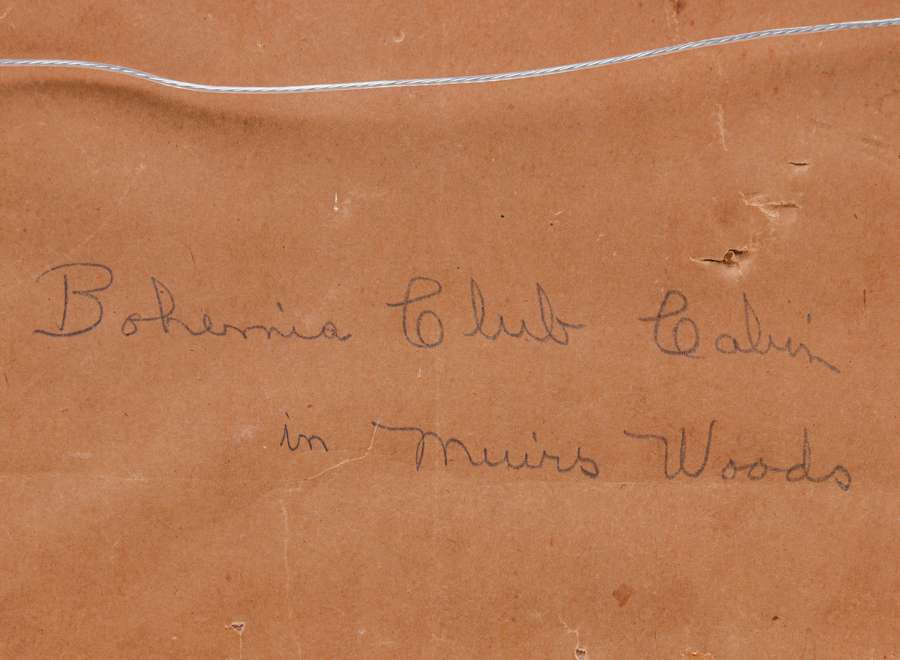 Bohemia Club Cabin
in Muirs Woods